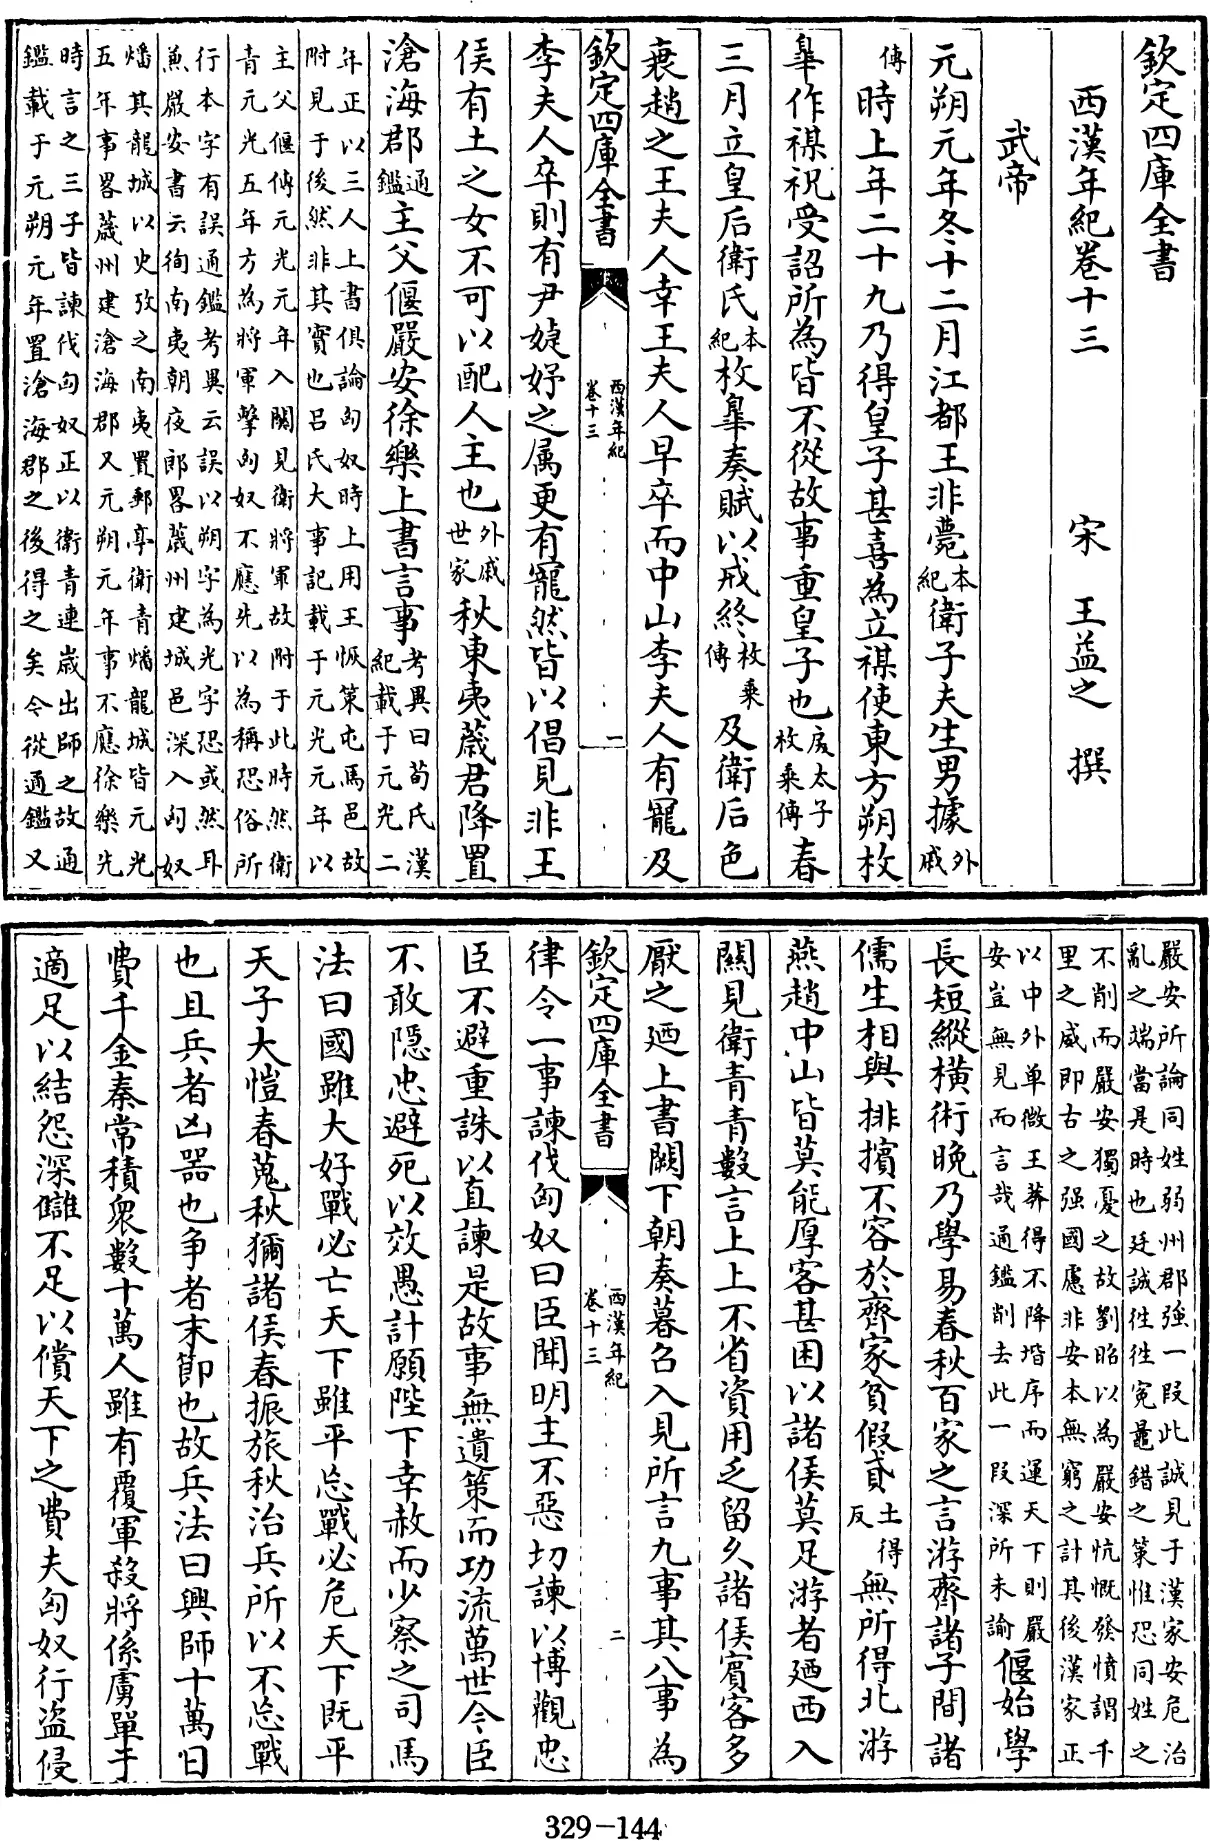 欽定四庫全書
西漢年紀卷十三　宋　王益之　撰
武帝
元朔元年冬十二月江都王非薨本紀衛子夫生男據外戚
傳時上年二十九乃得皇子甚喜為立禖使東方朔枚
臯作禖祝受詔所為皆不從故事重皇子也戾太子枚乘傳春
三月立皇后衛氏本紀枚臯奏賦以戒終枚乘傳及衛后色
衰趙之王夫人幸王夫人早卒而中山李夫人有寵及
欽定四庫全書　西漢年紀卷十三　一
李夫人卒則有尹婕妤之属更有寵然皆以倡見非王
侯有土之女不可以配人主也外戚世家秋東夷薉君降置
滄海郡通鑑主父偃嚴安徐樂上書言事考異曰荀氏漢紀載于元光二
年正以三人上書俱論匈奴時上用王恢策屯馬邑故
附見于後然非其實也呂氏大事記載于元光元年以
主父偃傳元光元年入關見衛將軍故附于此時然衛
青元光五年方為將軍擊匈奴不應先以為稱恐俗所
行本字有誤通鑑考異云誤以朔字為光字恐或然耳
兼嚴安書云徇南夷朝夜郎畧薉州建城邑深入匈奴
燔其龍城以史攷之南夷置郵亭衛青燔龍城皆元光
五年事畧薉州建滄海郡又元朔元年事不應徐樂先
時言之三子皆諫伐匈奴正以衛青連歲出師之故通
鑑載于元朔元年置滄海郡之後得之矣令從通鑑又
嚴安所論同姓弱州郡強一段此誠見于漢家安危治
亂之端當是時也廷誠徃徃寃鼂錯之策惟恐同姓之
不削而嚴安獨憂之故劉昭以為嚴安忼慨發憤謂千
里之威即古之强國慮非安本無窮之計其後漢家正
以中外单微王莽得不降堦序而運天下則嚴
安豈無見而言哉通鑑削去此一段深所未諭偃始學
長短縱橫術晚乃學易春秋百家之言游齊諸子間諸
儒生相與排擯不容於齊家貧假貸土得反無所得北游
燕趙中山皆莫能厚客甚困以諸侯莫足游者廼西入
關見衛青青數言上上不省資用乏留久諸侯賓客多
厭之廼上書闕下朝奏暮召入見所言九事其八事為
欽定四庫全書　西漢年紀卷十三　二
律令一事諫伐匈奴曰臣聞明主不惡切諫以博觀忠
臣不避重誅以直諫是故事無遺策而功流萬世今臣
不敢隱忠避死以效愚計願陛下幸赦而少察之司馬
法曰國雖大好戰必亡天下雖平忘戰必危天下既平
天子大愷春蒐秋獮諸侯春振旅秋治兵所以不忘戰
也且兵者凶器也争者末節也故兵法曰興師十萬日
費千金秦常積衆數十萬人雖有覆軍殺將係虜單于
適足以結怨深讎不足以償天下之費夫匈奴行盜侵
329-144